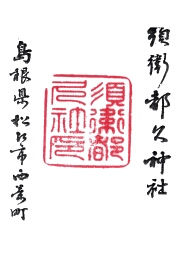 須衛都久神社
須衛都久社印
島根県松江市西茶町